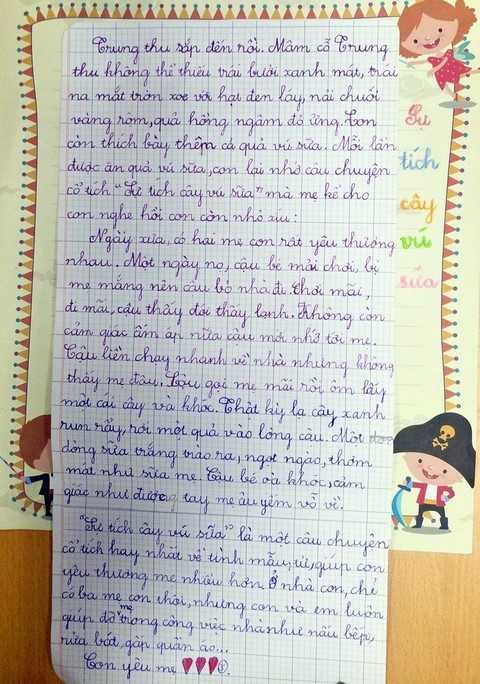 Trung thu sắp đến rồi. Mâm cỗ Trung
thu không thể thiếu trái bưởi xanh mát, trái
na mắt tròn xoe với hạt đen láy, nải chuối
vàng ròm, quả hồng ngâm đỏ ửng. Con
còn thích bày thêm cả quả vú sữa. Mỗi lần
được ăn quả vú sữa, con lại nhớ câu chuyện
cổ tích "Sự tích cây vú sữa" mà mẹ kể cho
con nghe hồi con còn nhỏ xíu:
Ngày xưa, có hai mẹ con rất yêu thương
nhau. Một ngày nọ, cậu bé mải chơi, bị
mẹ mắng nên cậu bỏ nhà đi. Chơi mãi,
đi mãi, cậu thấy đói thấy lạnh. Không còn
cảm giác ấm áp nữa cậu mới nhớ tới mẹ.
Cậu liền chạy nhanh về nhà nhưng không
thấy mẹ đâu. Cậu gọi mẹ mãi rồi ôm lấy
một cái cây và khóc. Thật kỳ lạ cây xanh
run rẩy, rơi một quả vào lòng cậu. Một
dòng sữa trắng trào ra, ngọt ngào, thơm
mát như sữa mẹ. Cậu bé oà khóc, cảm
giác như được tay mẹ âu yếm vỗ về.
"Sự tích cây vú sữa" là một câu chuyện
cổ tích hay nhất về tình mẫu tử, giúp con
yêu thương mẹ nhiều hơn. Ở nhà con, chỉ
có ba mẹ con thôi, nhưng con và em luôn
giúp đỡ mẹ trong công việc nhà như nấu bếp,
rửa bát, gấp quần áo...
Con yêu mẹ
Sự
tích
cây
vú
sữa